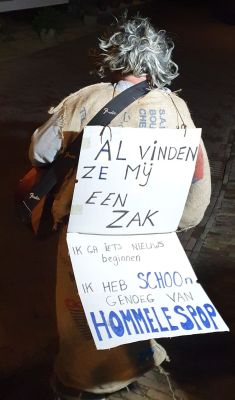 AL VINDEN
ZE MIJ
EEN
ZAK
IK GA IETS NIEUWS
beginnen
IK HEB SCHOON
GENOEG VAN
HOMMELESPOP
Fender